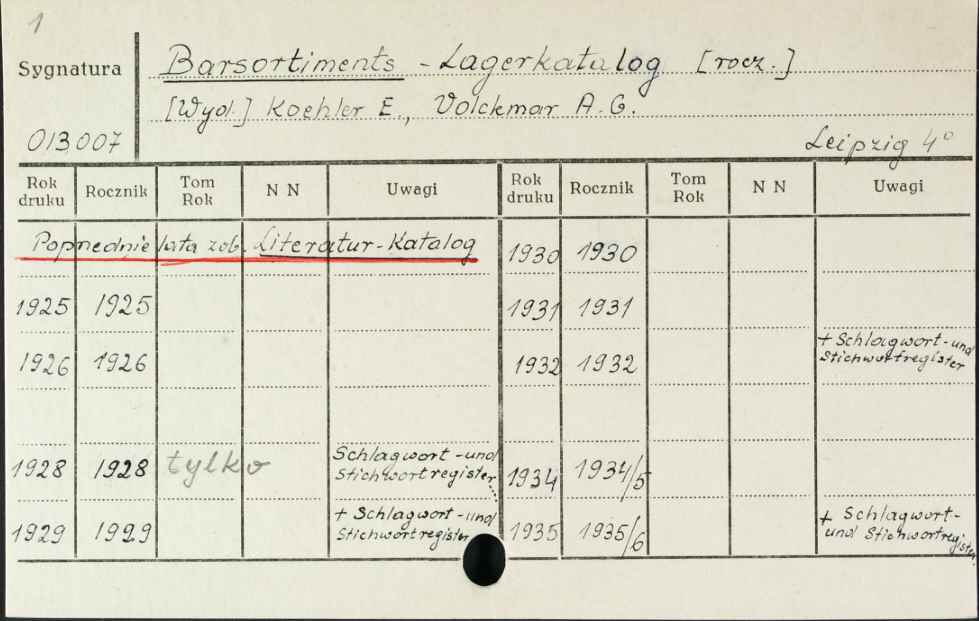 1
Sygnatura
Barsortiments - Lagerkatalog [rocz.]
[Wyd.] Koehler E., Volckmar A. G.
013.007
Leipzig 4°
Rok druku Rocznik Tom Rok N N Uwagi Rok druku Rocznik Tom Rok N N Uwagi
Poprzednie lata zob. Literatur-Katalog
1930 1930
1925 1925
1931 1931
1926 1926
1932 1932 + Schlagwort - und
Stichwortregister
1928 1928 tylko Schlagwort - und
Stichwortregister
1934 1934/5
1929 1929 + Schlagwort - und
Stichwortregister
1935 1935/6 + Schlagwort-
und Stichwortregister